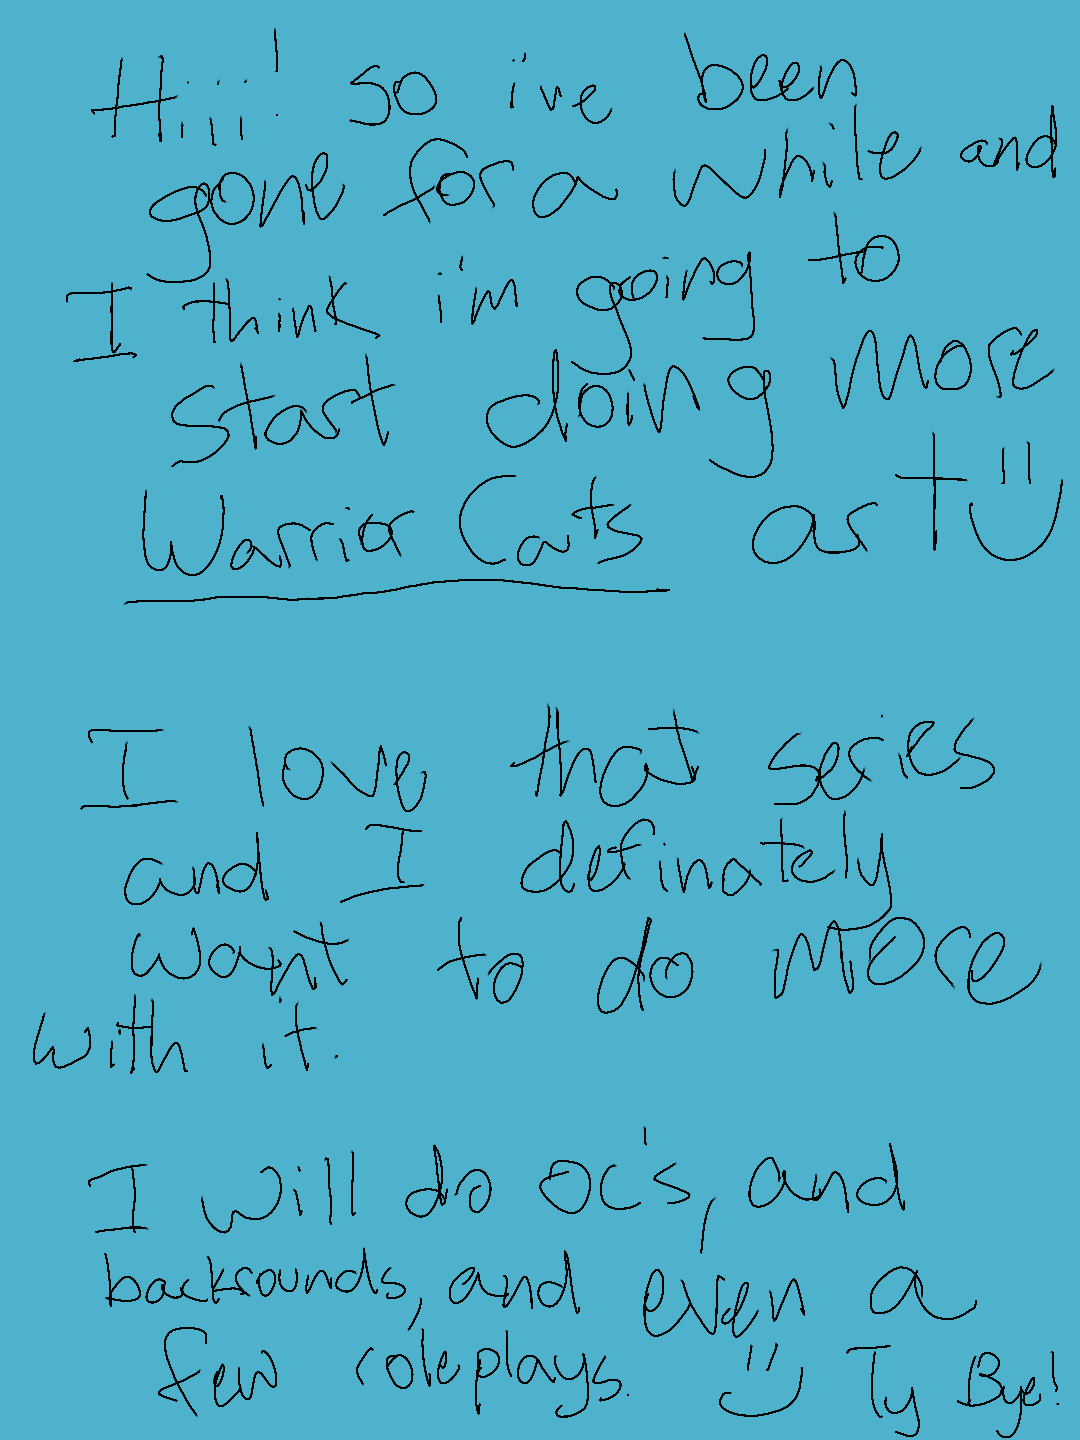 Hiii! so i've been
gone for a while and
I think i'm going to
start doing more
Warrior Cats art
I love that series
and I definately
want to do more
with it.
I will do oc's, and
backrounds, and even a
few roleplays. Ty Bye!